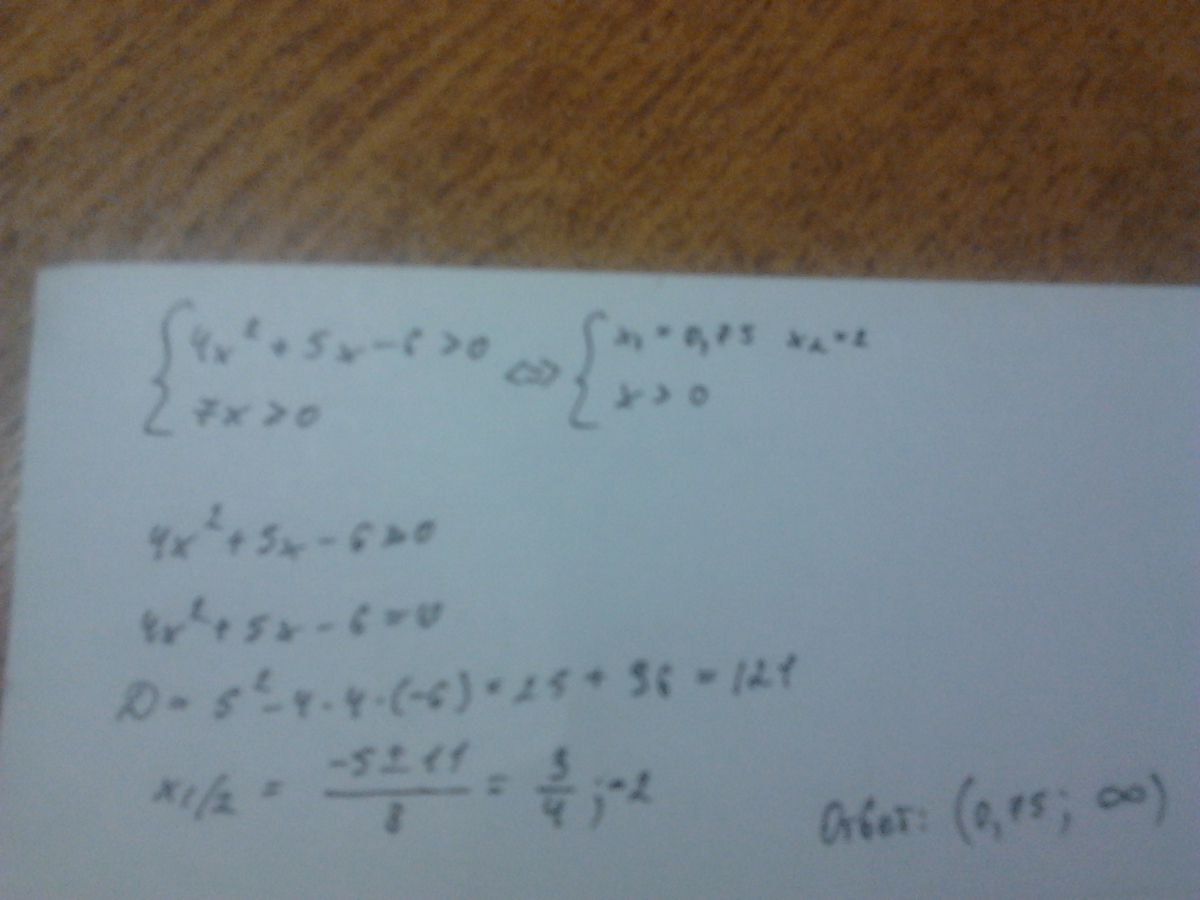 { 4x² + 5x - 6 > 0 ⇔ { x₁ = 0,75 x₂ = 2
7x > 0 x > 0
4x² + 5x - 6 > 0
4x² + 5x - 6 = 0
D = 5² - 4 · 4 · (-6) = 25 + 96 = 121
x₁/₂ = (-5 ± 11)/8 = 3/4 ; -2
Ответ: (0,75; ∞)